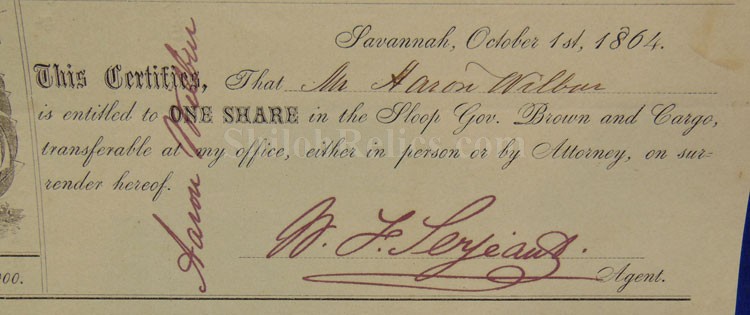 Savannah, October 1st, 1864.
This Certifies, That Mr Aaron Wilbur
is entitled to ONE SHARE in the Sloop Gov. Brown and Cargo,
transferable at my office, either in person or by Attorney, on sur-
render hereof.
Aaron Wilbur
W. F. Serjeant.
Agent.
000.
ShilohRelics.com